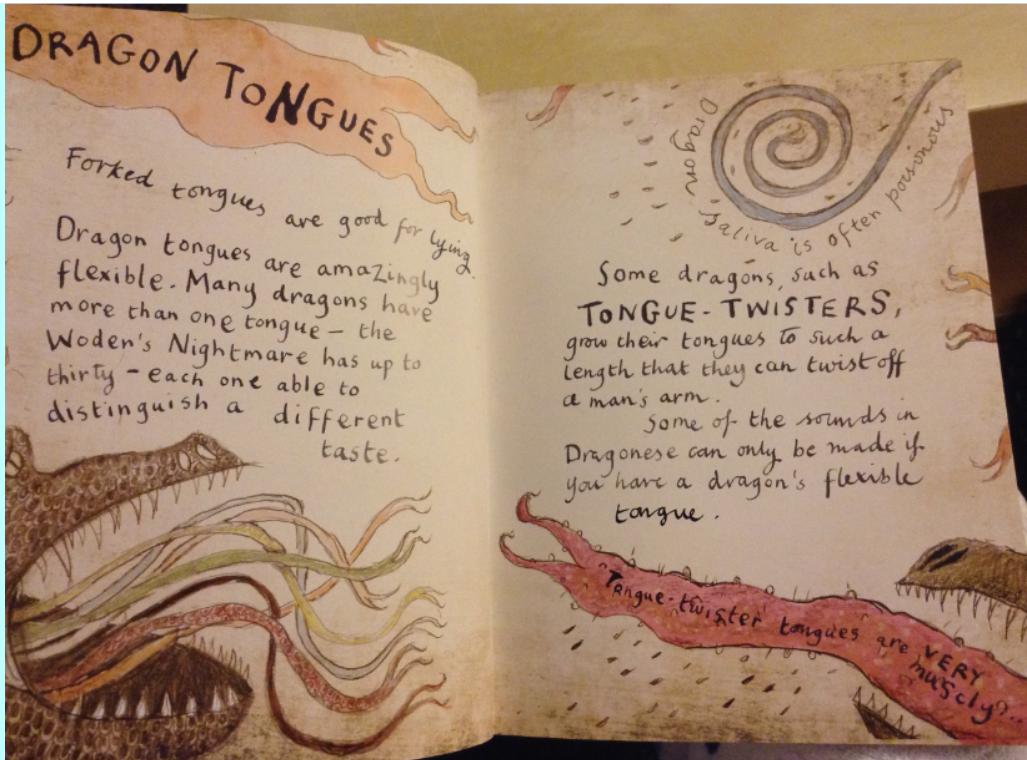 DRAGON TONGUES
Forked tongues are good for lying.
Dragon tongues are amazingly
flexible. Many dragons have
more than one tongue – the
Woden's Nightmare has up to
thirty – each one able to
distinguish a different
taste.
Dragon saliva is often poisonous
Some dragons, such as
TONGUE-TWISTERS,
grow their tongues to such a
length that they can twist off
a man's arm.
Some of the sounds in
Dragonese can only be made if
you have a dragon's flexible
tongue.
Tongue-twister tongues are VERY
muscly?..